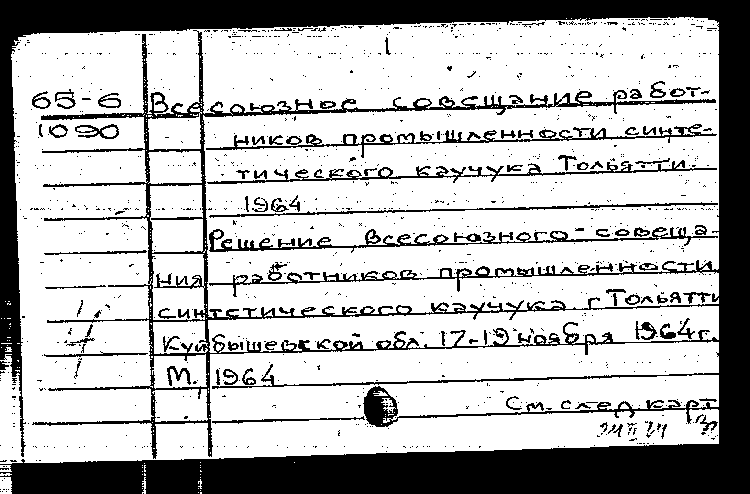 1
65-6 Всесоюзное совещание работ-
1090 ников промышленности синте-
тического каучука Тольятти.
1964
Решение Всесоюзного совеща-
ния работников промышленности
синтетического каучука г Тольятти
Куйбышевской обл. 17-19 ноября 1964 г.
М., 1964
См. след карт